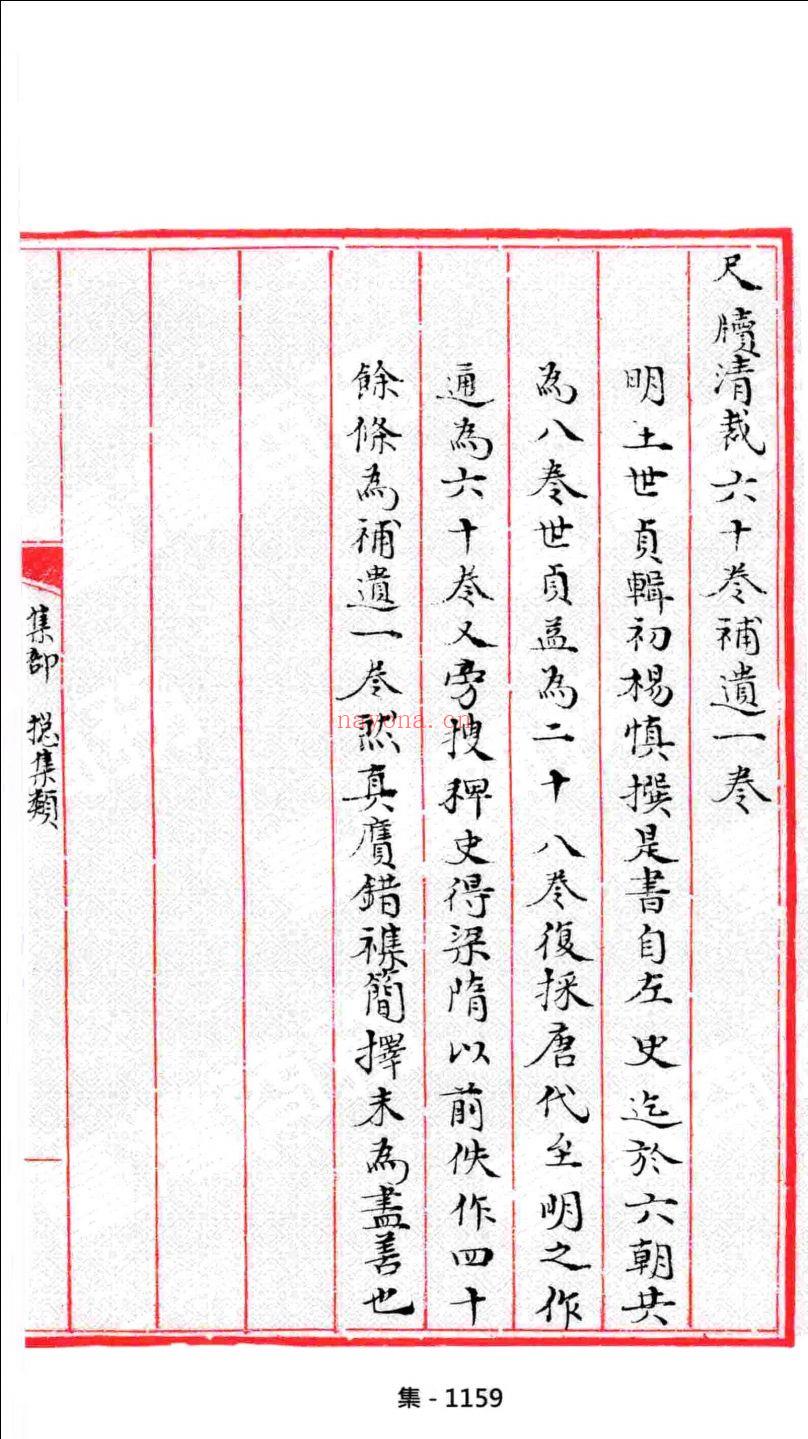 尺牘清裁六十卷補遺一卷
明王世貞輯初楊慎撰是書自左史迄於六朝共
為八卷世貞益為二十八卷復採唐代至明之作
通為六十卷又旁搜稗史得梁隋以前佚作四十
餘條為補遺一卷然真贋錯襍簡擇未為盡善也
集部 捴集類
nayona.cn
集 - 1159